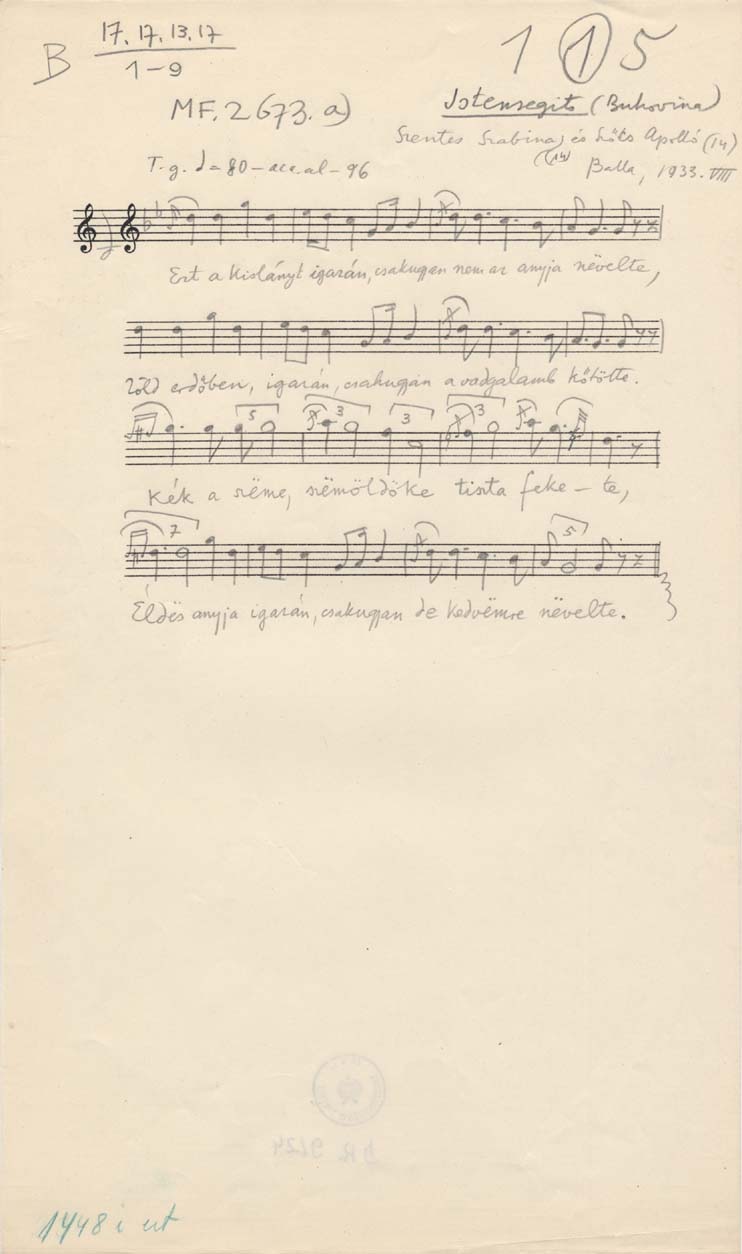 B 17. 17. 13. 17
1–9
1 1 5
MF. 2673. a)
Istensegits (Bukovina)
Szentes Szabina, és Szőts Apolló (14)
(14)
Balla, 1933. VIII
T. g. = 80 – acc. al – 96
Ezt a kislányt igazán, csakugyan nem az anyja nëvelte,
Zöld erdőben, igazán, csakugyan a vadgalamb költötte.
5 3 3 3
Kék a szëme, szëmöldöke tiszta feke – te,
7 5
Éldës anyja igazán, csakugyan de kedvëmre nëvelte.